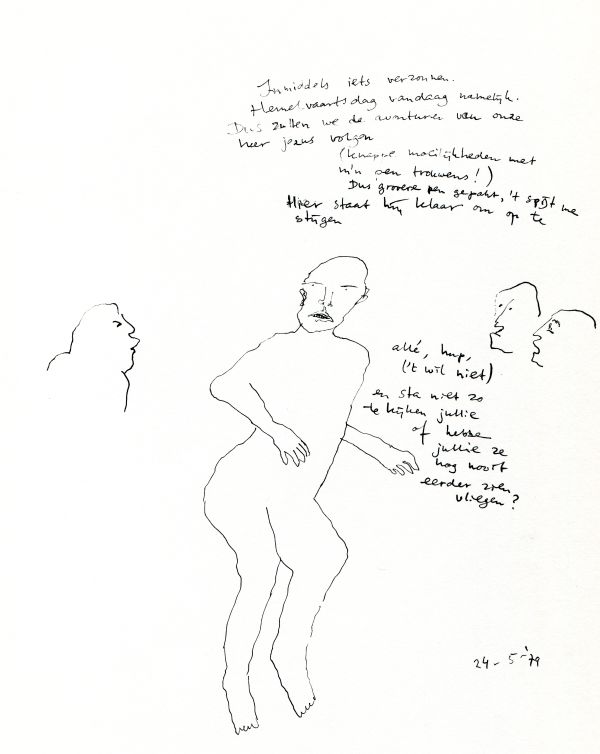 Inmiddels iets verzonnen.
Hemelvaartsdag vandaag namelijk.
Dus zullen we de avonturen van onze
heer jezus volgen
(knappe moeilijkheden met
m'n pen trouwens!)
Dus grovere pen gepakt, 't spijt me
Hier staat hij klaar om op te
stijgen
allé, hup,
('t wil niet)
en sta niet zo
te kijken jullie
of hebbe
jullie ze
nog nooit
eerder zien
vliegen?
24-5-'79